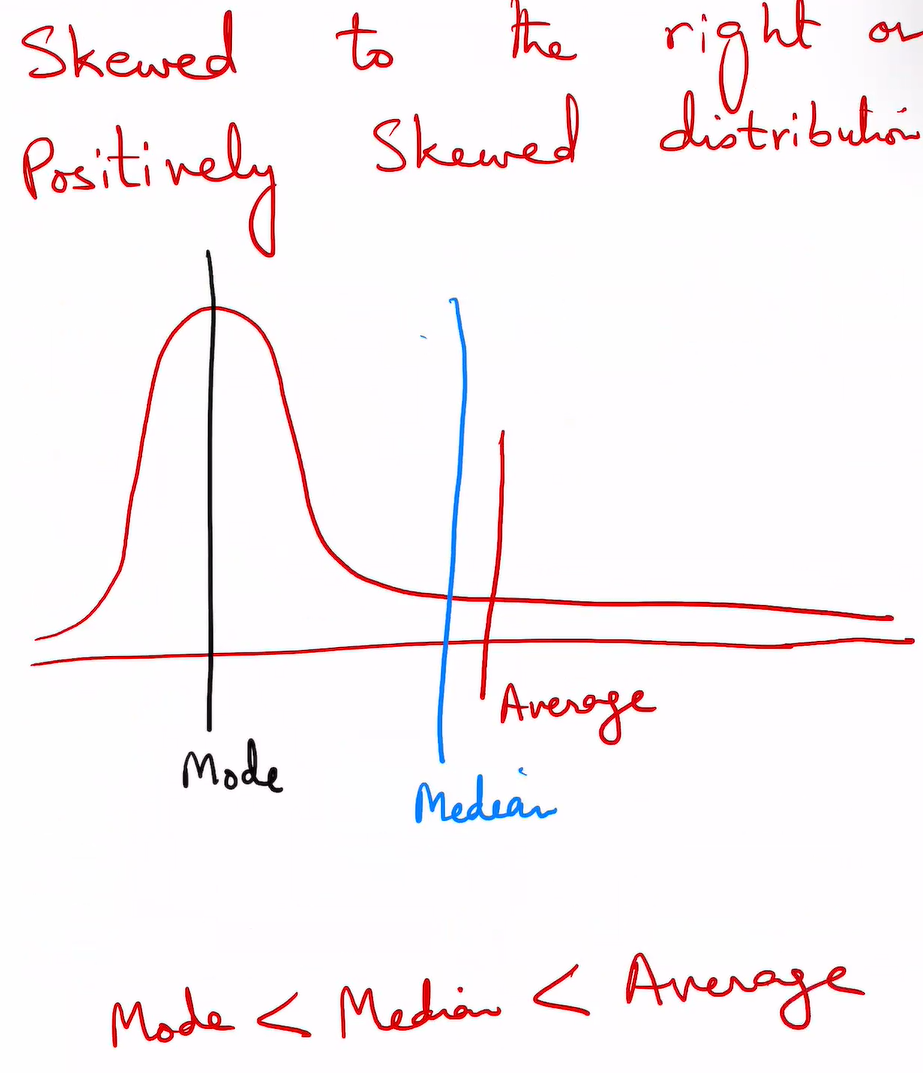 Skewed to the right or
Positively Skewed distribution
Average
Mode
Median
Mode < Median < Average